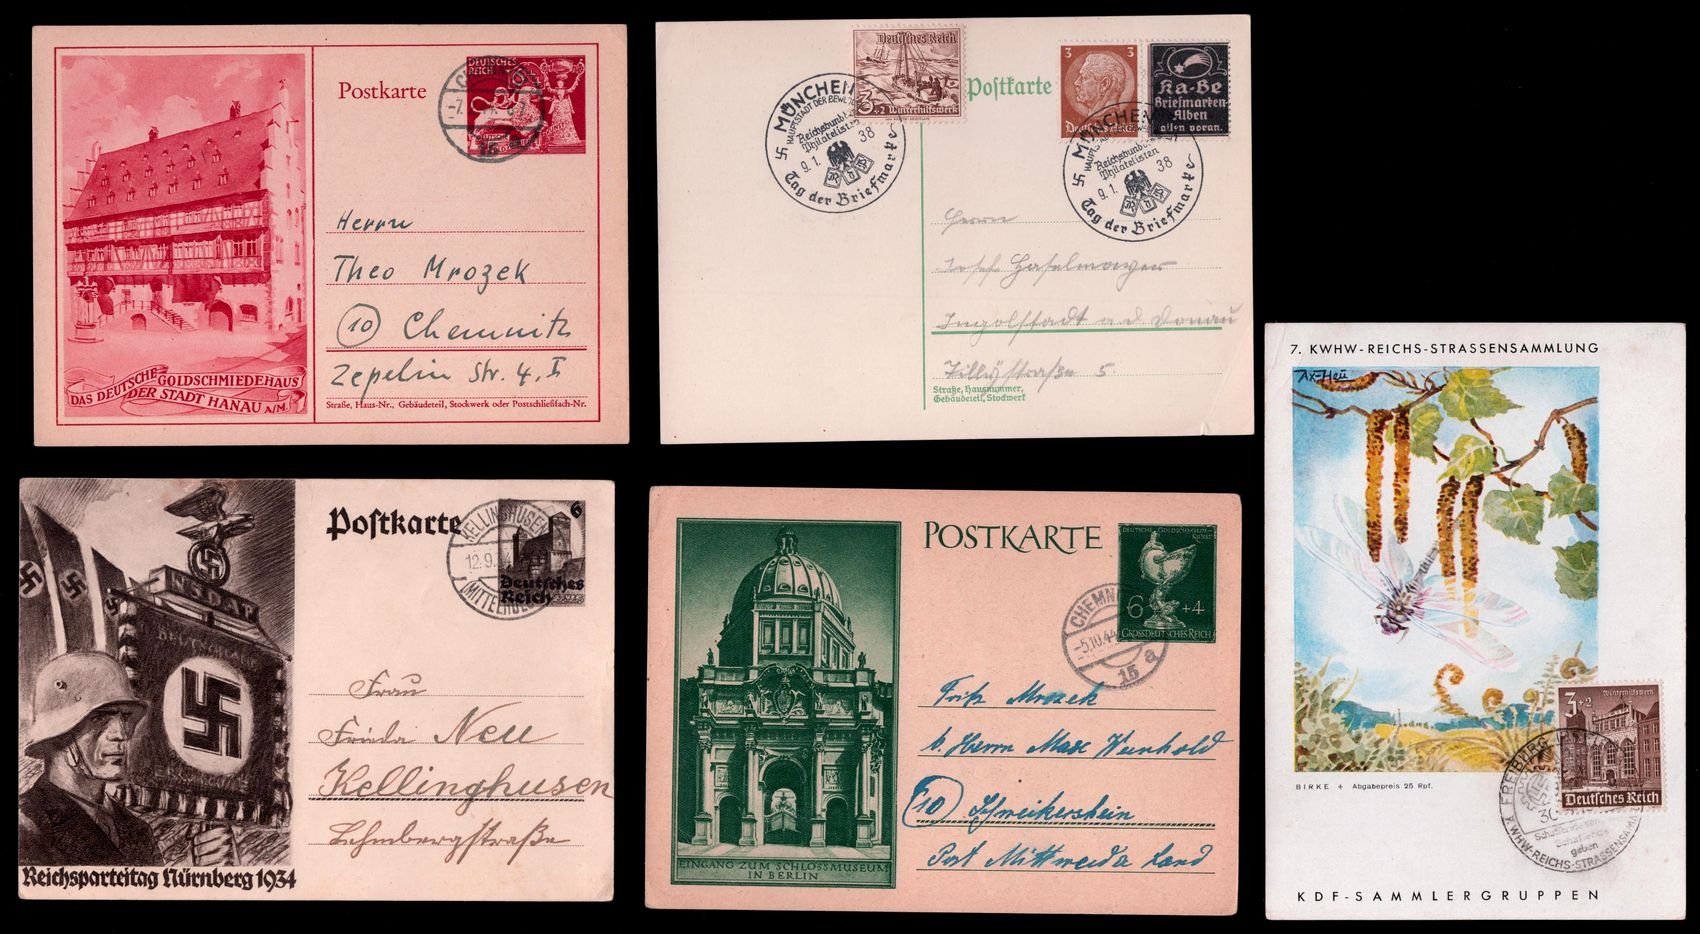 Postkarte
DEUTSCHES
REICH
Herrn
Theo Mrozek
(10) Chemnitz
Zepelin Str. 4. I
Straße, Haus-Nr., Gebäudeteil, Stockwerk oder Postschließfach-Nr.
DAS DEUTSCHE GOLDSCHMIEDEHAUS
DER STADT HANAU A/M.
Deutsches Reich
3+2 Winterhilfswerk
Postkarte
3 3
Deutsches Reich
Ka-Be
Briefmarken-
Alben
allen voran.
MÜNCHEN
HAUPTSTADT DER BEWEGUNG
Reichsbund
Philatelisten
9.1. 38
Tag der Briefmarke
MÜNCHEN
Reichsbund
Philatelisten
9.1. 38
Tag der Briefmarke
Herrn
Josef Haselmayer
Ingolstadt a. d. Donau
Tillystraße 5.
Straße, Hausnummer,
Gebäudeteil, Stockwerk
Postkarte
6
Deutsches
Reich
KELLINGHUSEN
12.9.34
(MITTELHOLST)
NSDAP
DEUTSCHLAND
ERWACHE
Frau
Frieda Neu
Kellinghusen
Lehmbergstraße
Reichsparteitag Nürnberg 1934
POSTKARTE
DEUTSCHE GOLDSCHMIEDE-
KUNST
6 +4
GROSSDEUTSCHES REICH
CHEMN
-5.10.44
15 a
Fritz Mrozek
b. Herrn Max Weinhold
(10) Schweikershein
Post Mittweida Land
EINGANG ZUM SCHLOSSMUSEUM
IN BERLIN
7. KWHW-REICHS-STRASSENSAMMLUNG
Ax-Heu
BIRKE + Abgabepreis 25 Rpf.
3+2 Winterhilfswerk
Deutsches Reich
FREIBURG
30
Schaffende
geben
7. KWHW-REICHS-STRASSENSAMML
KDF-SAMMLERGRUPPEN